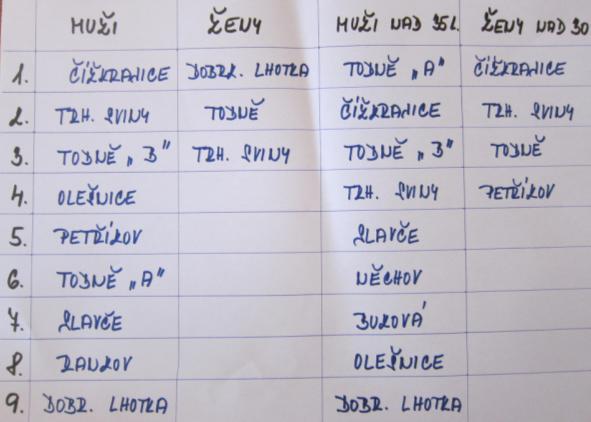 MUŽI ŽENY MUŽI NAD 35L. ŽENY NAD 30
1. ČÍŽKRAJICE DOBR. LHOTKA TODNĚ „A" ČÍŽKRAJICE
2. TRH. SVINY TODNĚ ČÍŽKRAJICE TRH. SVINY
3. TODNĚ „B" TRH. SVINY TODNĚ „B" TODNĚ
4. OLEŠNICE TRH. SVINY PETŘÍKOV
5. PETŘÍKOV SLAVČE
6. TODNĚ „A" NĚCHOV
7. SLAVČE BUKOVÁ
8. RANKOV OLEŠNICE
9. DOBR. LHOTKA DOBR. LHOTKA